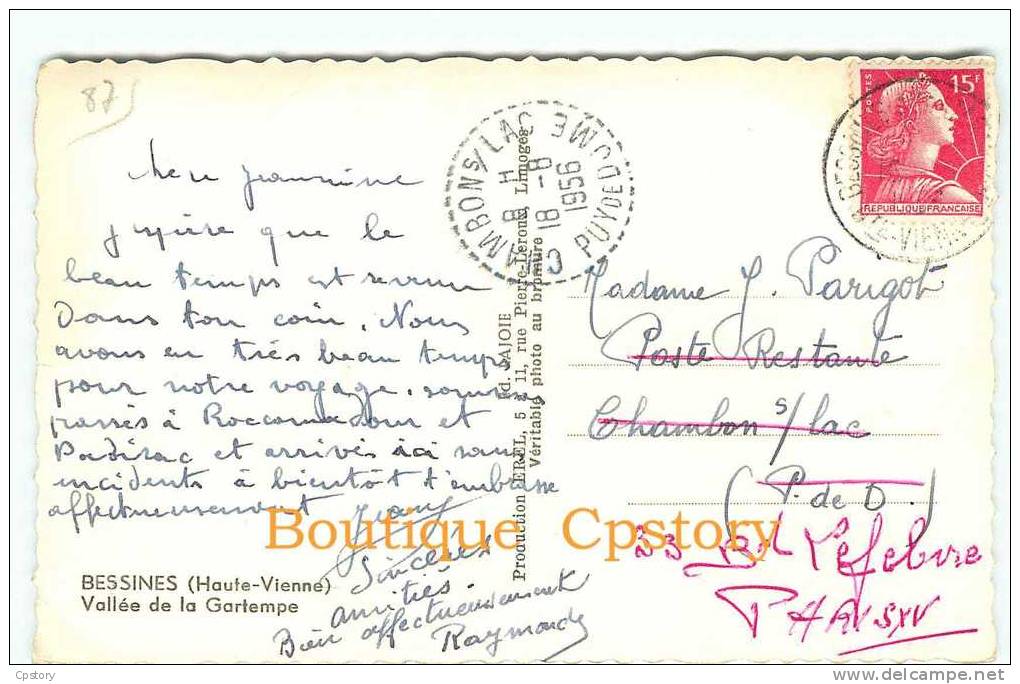 87
Chère Jeannine
j'espère que le
beau temps est revenu
dans ton coin. Nous
avons eu très beau temps
pour notre voyage. sommes
passés à Roccamadour et
Padirac et arrivés ici sans
incidents à bientôt t'embrasse
affectueusement
Sincères
amitiés.
Bien affectueusement
Raymonde
BESSINES (Haute-Vienne)
Vallée de la Gartempe
Production EREL, 5 à 11, rue Pierre-Leroux, Limoges
Ed. LAJOIE
Véritable photo au bromure
CHAMBON S/LAC
PUY DE DOME
18 H
18 - 8
1956
POSTES
15F
REPUBLIQUE FRANCAISE
HTE-VIENNE
Madame J. Parigot
Poste Restante
Chambon s/lac
(P. de D.)
33 Bd Lefebvre
PARIS XV
Boutique Cpstory
Cpstory
delcampe.net